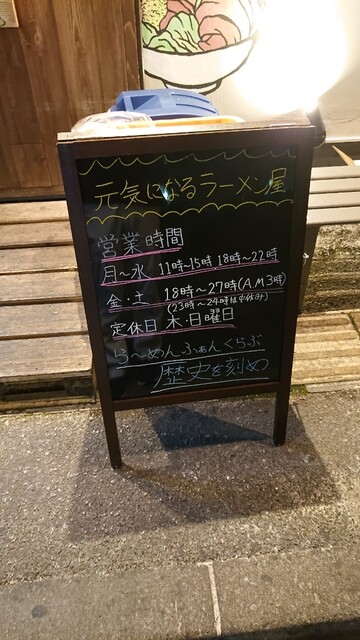 元気になるラーメン屋
営業時間
月～水 11時~15時 18時～22時
金・土 18時～27時(A.M3時)
(23時～24時は中休み)
定休日 木・日曜日
らーめんふぁんくらぶ
歴史を刻め